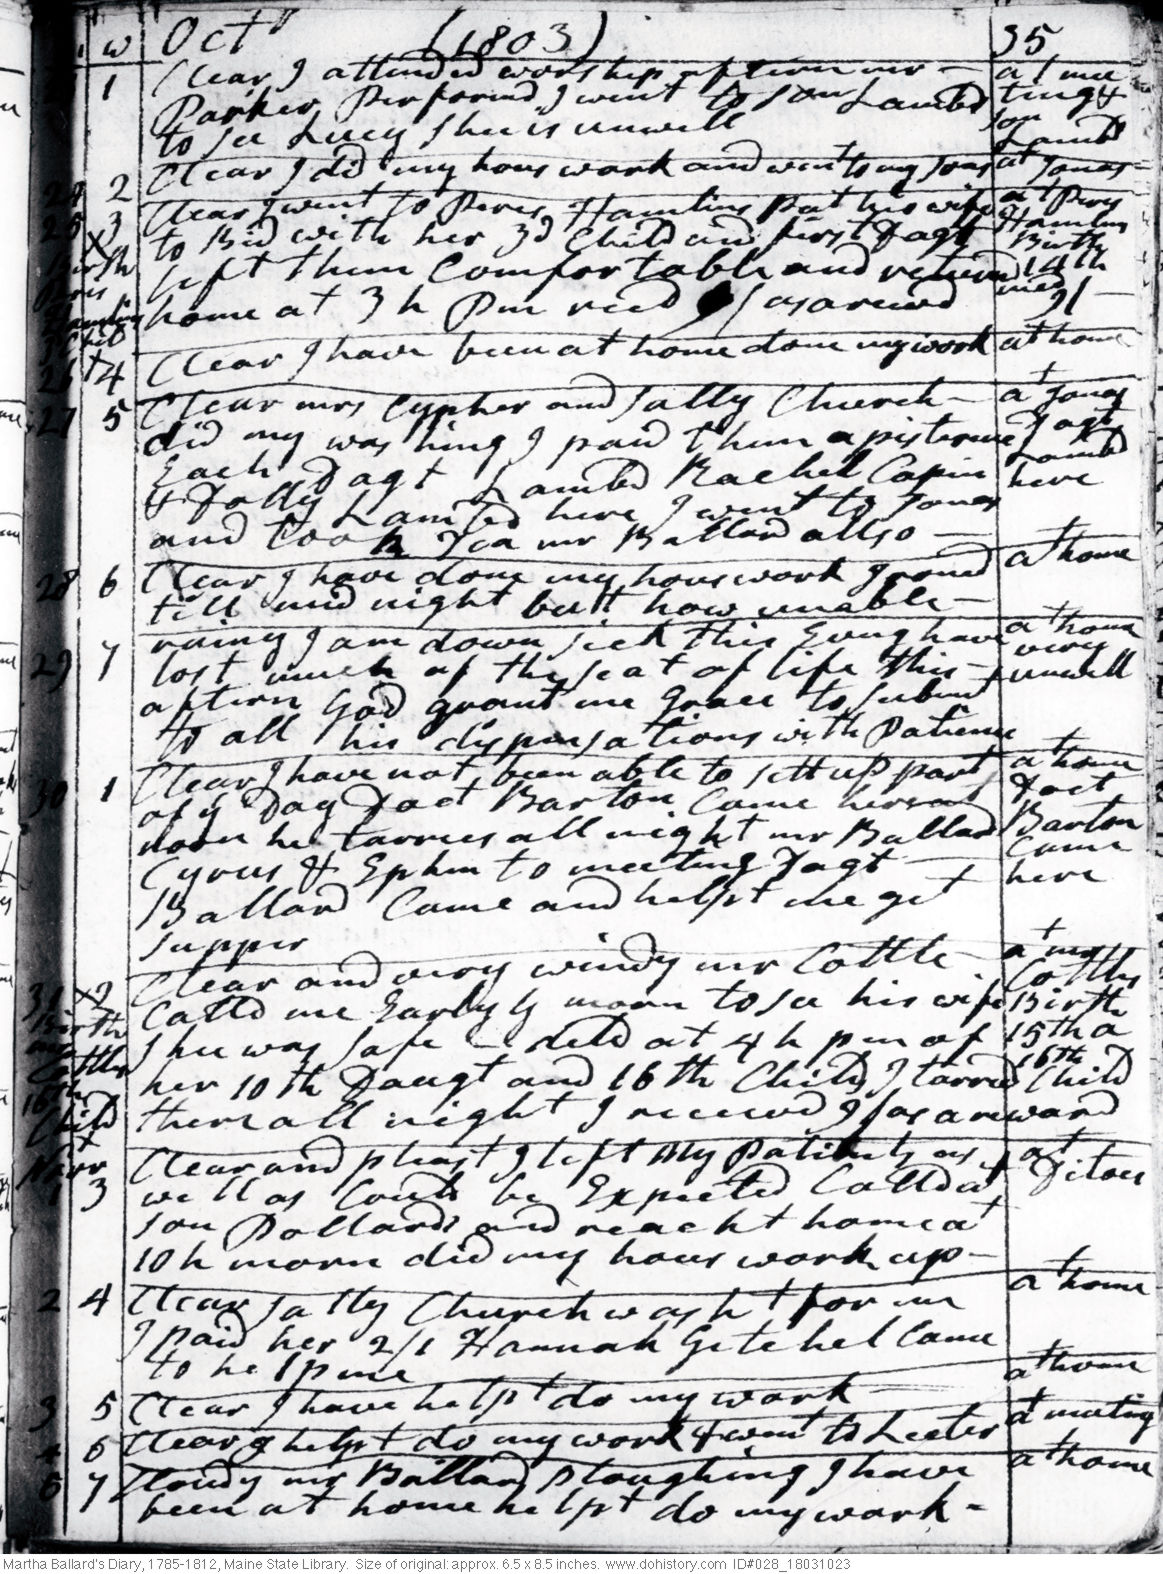 w Oct (1803) 35
1 Clear, I attended worship aftern mr
Parker Performd, I went to son Lambds
to see Lucy shee is unwell
at meeting & son Lambd
24 2 Clear I did my hous work and went to my sons
at Jonas
25 3 Clear I went to Peres Hamlins put his wife
to Bed with her 3d Child and first Dagt
left them Comfortable and returnd
home at 3 h Pm recd 9/ as a rewd
X Birth Peres Hamlins Child
at Peres Hamlins Birth 14th
9/
26 4 Clear I have been at home done my work
at home
27 5 Clear mrs Cypher and Sally Church
did my washing I paid them a pistereen
Each Dagt Lambd Rachel Capin
& Dolly Lambd here I went to Jonas
and took Tea mr Ballard allso
at Jonas Dagt Lambd here
28 6 Clear I have done my hous work
till mid night but how unable
at home
29 7 rainy I am down sick this Evng have
lost much of the seat of life this
aftern God grant me Grace to submit
to all his dispensations with Patience
at home very unwell
30 1 Clear I have not been able to sett up part
of ye Day Doct Barton Came here at
noon he tarries all night mr Ballard
Cyrus & Ephm to meeting Dagt
Ballard Came and helpt me get
supper
at home Doct Barton Came here
31 X 2 Clear and very windy mr Cottle
Calld me Early ys morn to see his wife
shee was safe deld at 4 h pm of
her 10th Daugt and 16th Child, I tarried
there all night I received 9/ as a reward
Birth mr Cottles 16th Child
at mr Cottles Birth 15th a 16th Child
X Novr
1 3 Clear and pleast I left my Patients as
well as Could be Expected Calld at
son Pollards and reacht home at
10 h morn did my hous work up
at Ditoes
2 4 Clear Sally Church washt for me
I paid her 2/1 Hannah Getchel Came
to help me
at home
3 5 Clear I have helpt do my work
at home
4 6 Clear I helpt do my work & went to Lecter
at meeting
5 7 Cloudy mr Ballard ploughing I have
been at home helpt do my work
at home
Martha Ballard's Diary, 1785-1812, Maine State Library. Size of original: approx. 6.5 x 8.5 inches. www.dohistory.com ID#028_18031023